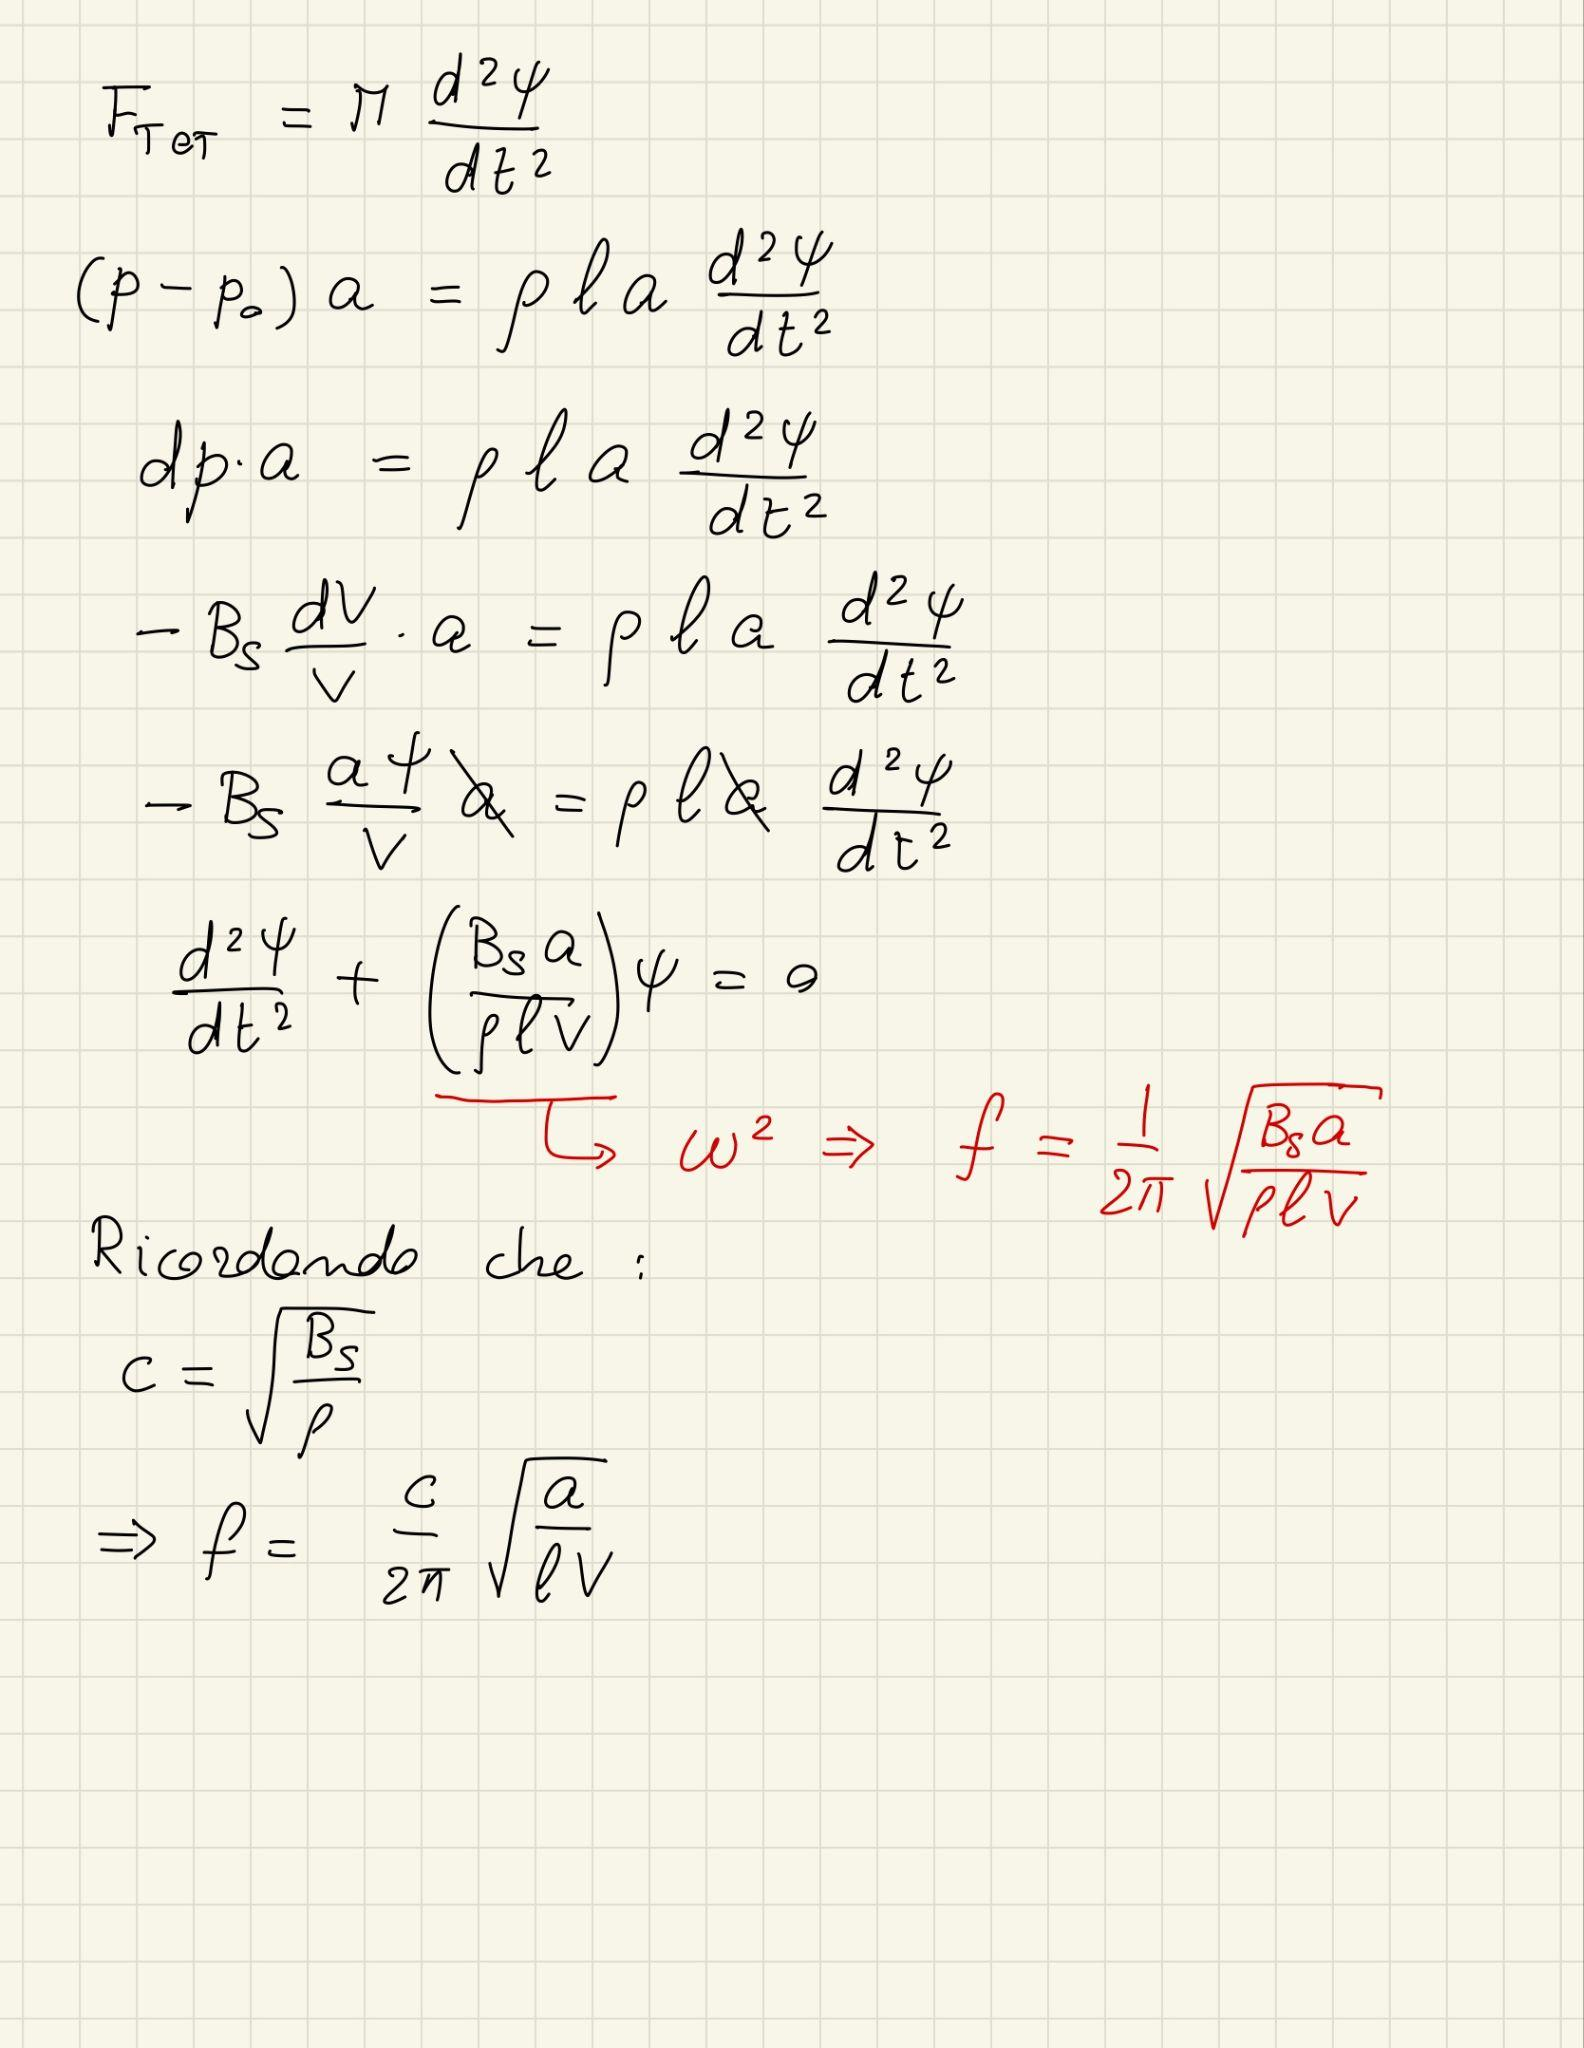 F_TOT = M d²ψ/dt²
(p - p₀) a = ρ l a d²ψ/dt²
dp · a = ρ l a d²ψ/dt²
- B_s dV/V · a = ρ l a d²ψ/dt²
- B_s aψ/V a = ρ l a d²ψ/dt²
d²ψ/dt² + (B_s a/ρlV) ψ = 0
↳ ω² ⇒ f = 1/2π √(B_s a/ρlV)
Ricordando che :
c = √(B_s/ρ)
⇒ f = c/2π √(a/lV)